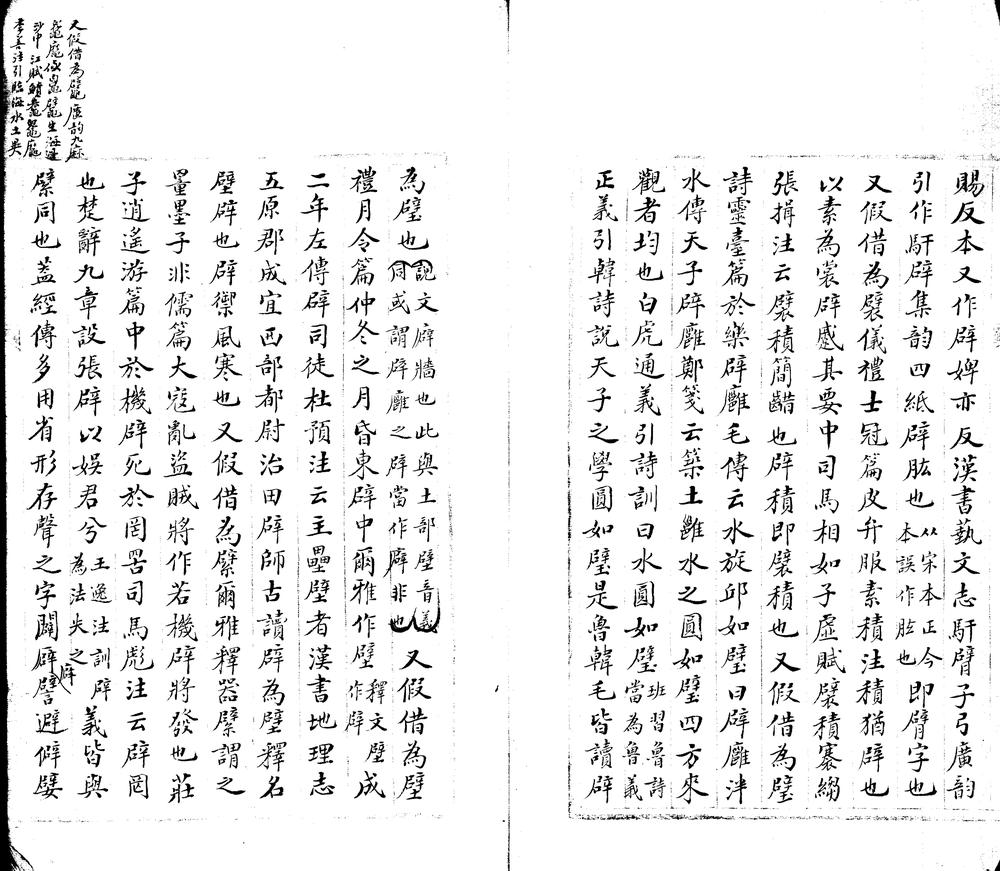 賜反本又作辟婢亦反漢書藝文志馯臂子弓廣韵
引作馯辟集韵四紙辟肱也从宋本正今本誤作胘也即臂字也
又假借為襞儀禮士冠篇皮弁服素積注積猶辟也
以素為裳辟蹙其要中司馬相如子虛賦襞積褰縐
張揖注云襞積簡齰也辟積即襞積也又假借為璧
詩靈臺篇於樂辟廱毛傳云水旋邱如璧曰辟廱泮
水傳天子辟廱鄭箋云築土雝水之圓如璧四方來
觀者均也白虎通義引詩訓曰水圓如璧班習魯詩當為魯義
正義引韓詩說天子之學圓如璧是魯韓毛皆讀辟
為璧也說文廦牆也此與土部壁音義同或謂辟廱之辟當作廦非也又假借為壁
禮月令篇仲冬之月昏東辟中爾雅作壁釋文壁作辟成
二年左傳辟司徒杜預注云主壘壁者漢書地理志
五原郡成宜西部都尉治田辟師古讀辟為壁釋名
壁辟也辟禦風寒也又假借為繴爾雅釋器繴謂之
罿墨子非儒篇大寇亂盜賊將作若機辟將發也莊
子逍遙游篇中於機辟死於罔罟司馬彪注云辟罔
也楚辭九章設張辟以娛君兮王逸注訓辟為法失之辟義皆與
繴同也蓋經傳多用省形存聲之字闢廦譬避僻嬖
又假借為鼊廣韵九麻
沙中江賦
李善注引臨海水土異